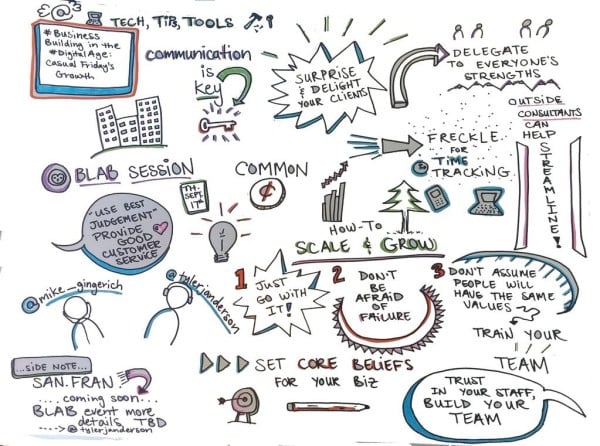 TECH, TIPS, TOOLS
# Business
Building in the
#Digital Age:
Casual Friday's
Growth
communication
is
key
SURPRISE
& DELIGHT
YOUR CLIENTS
DELEGATE
TO EVERYONE'S
STRENGTHS
OUTSIDE
CONSULTANTS
CAN
HELP
STREAMLINE!
FRECKLE
FOR
TIME
TRACKING
BLAB SESSION
TH.
SEPT.
17
COMMON
¢
"USE BEST
JUDGEMENT"
PROVIDE
GOOD
CUSTOMER
SERVICE
HOW-TO
SCALE & GROW
@mike_gingerich
@tylerjanderson
1 JUST
GO WITH
IT!
2 DON'T
BE
AFRAID
OF
FAILURE
3 DON'T ASSUME
PEOPLE WILL
HAVE THE SAME
VALUES
TRAIN YOUR
TEAM
...SIDE NOTE...
SAN.FRAN
....coming soon...
BLAB event more
details, TBD
---> @tylerjanderson
SET CORE BELIEFS
FOR YOUR BIZ
TRUST
IN YOUR STAFF,
BUILD YOUR
TEAM